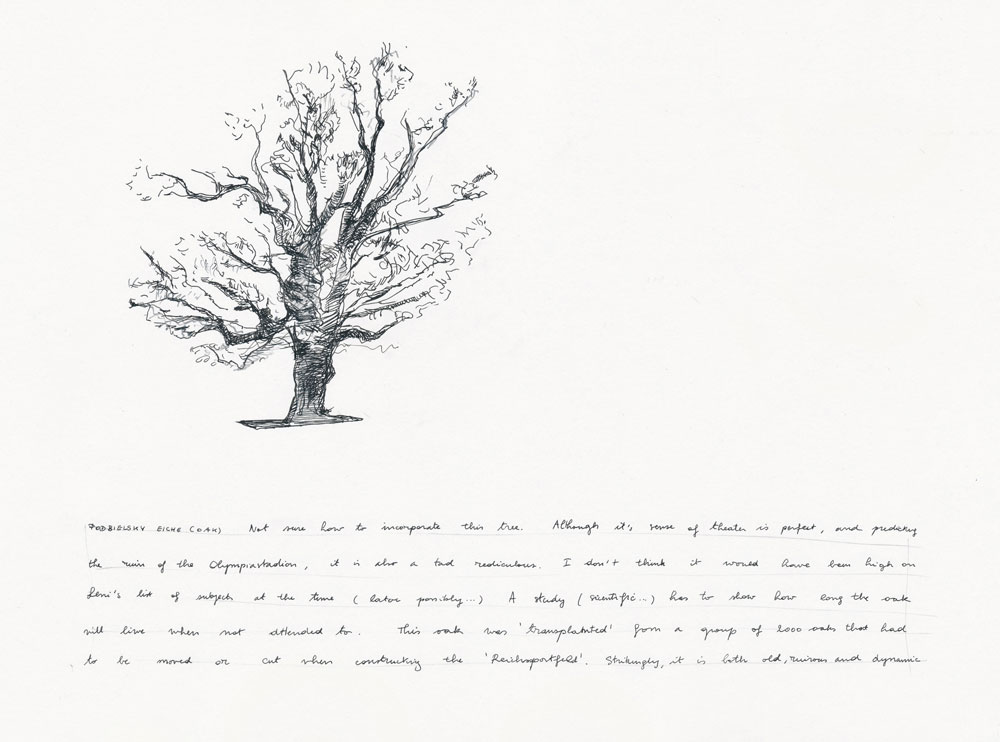 PODBIELSKY EICHE (OAK) Not sure how to incorporate this tree. Although it's sense of theater is perfect, and predating
the ruin of the Olympiastadion, it is also a tad rediculous. I don't think it would have been high on
Leni's list of subjects at the time (later possibly...) A study (scientific...) has to show how long the oak
will live when not attended to. This oak was 'transplanted' from a group of 2000 oaks that had
to be moved or cut when constructing the 'Reichssportfeld'. Strikingly, it is both old, ruinous and dynamic